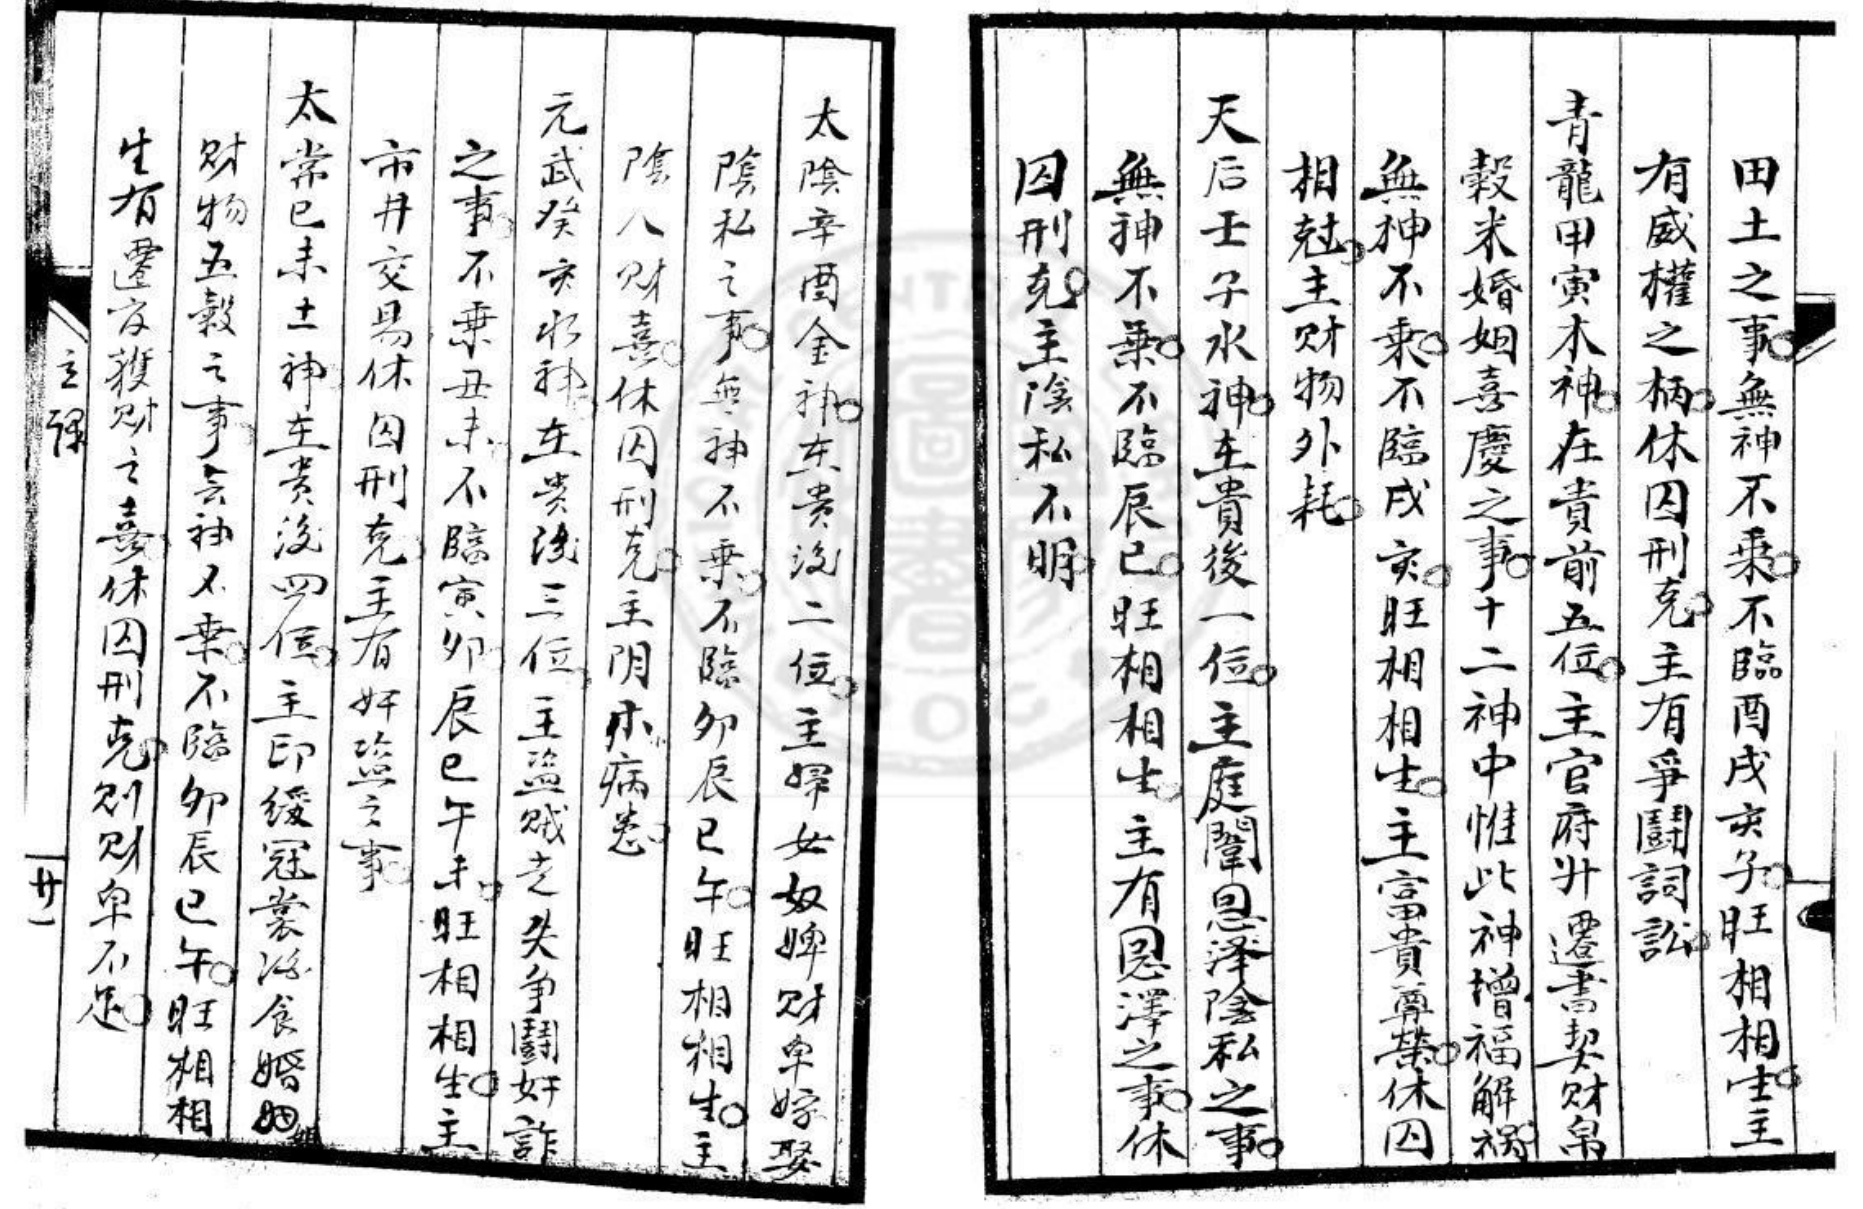 田土之事無神不乘不臨酉戌亥子旺相相生主
有威權之柄休囚刑克主有爭鬪詞訟
青龍甲寅木神在貴前五位主官府升遷書契財帛
穀米婚姻喜慶之事十二神中惟此神增福解禍
無神不乘不臨戌亥旺相相生主富貴尊榮休囚
相尅主財物外耗
天后壬子水神在貴後一位主庭闈恩澤陰私之事
無神不乘不臨辰巳旺相相生主有恩澤之事休
囚刑克主陰私不明
太陰辛酉金神在貴後二位主婦女奴婢財帛嫁娶
陰私之事無神不乘不臨卯辰巳午旺相相生主
陰人財喜休囚刑克主阴小病患
元武癸亥水神在貴後三位主盜賊走失争鬪奸詐
之事不乘丑未不臨寅卯辰巳午未旺相相生主
市井交易休囚刑克主有奸盜之事
太常己未土神在貴後四位主印綬冠裳酒食婚姻
財物五穀之事無神不乘不臨卯辰巳午旺相相
生有遷官獲財之喜休囚刑克則財帛不足
立課
廿一